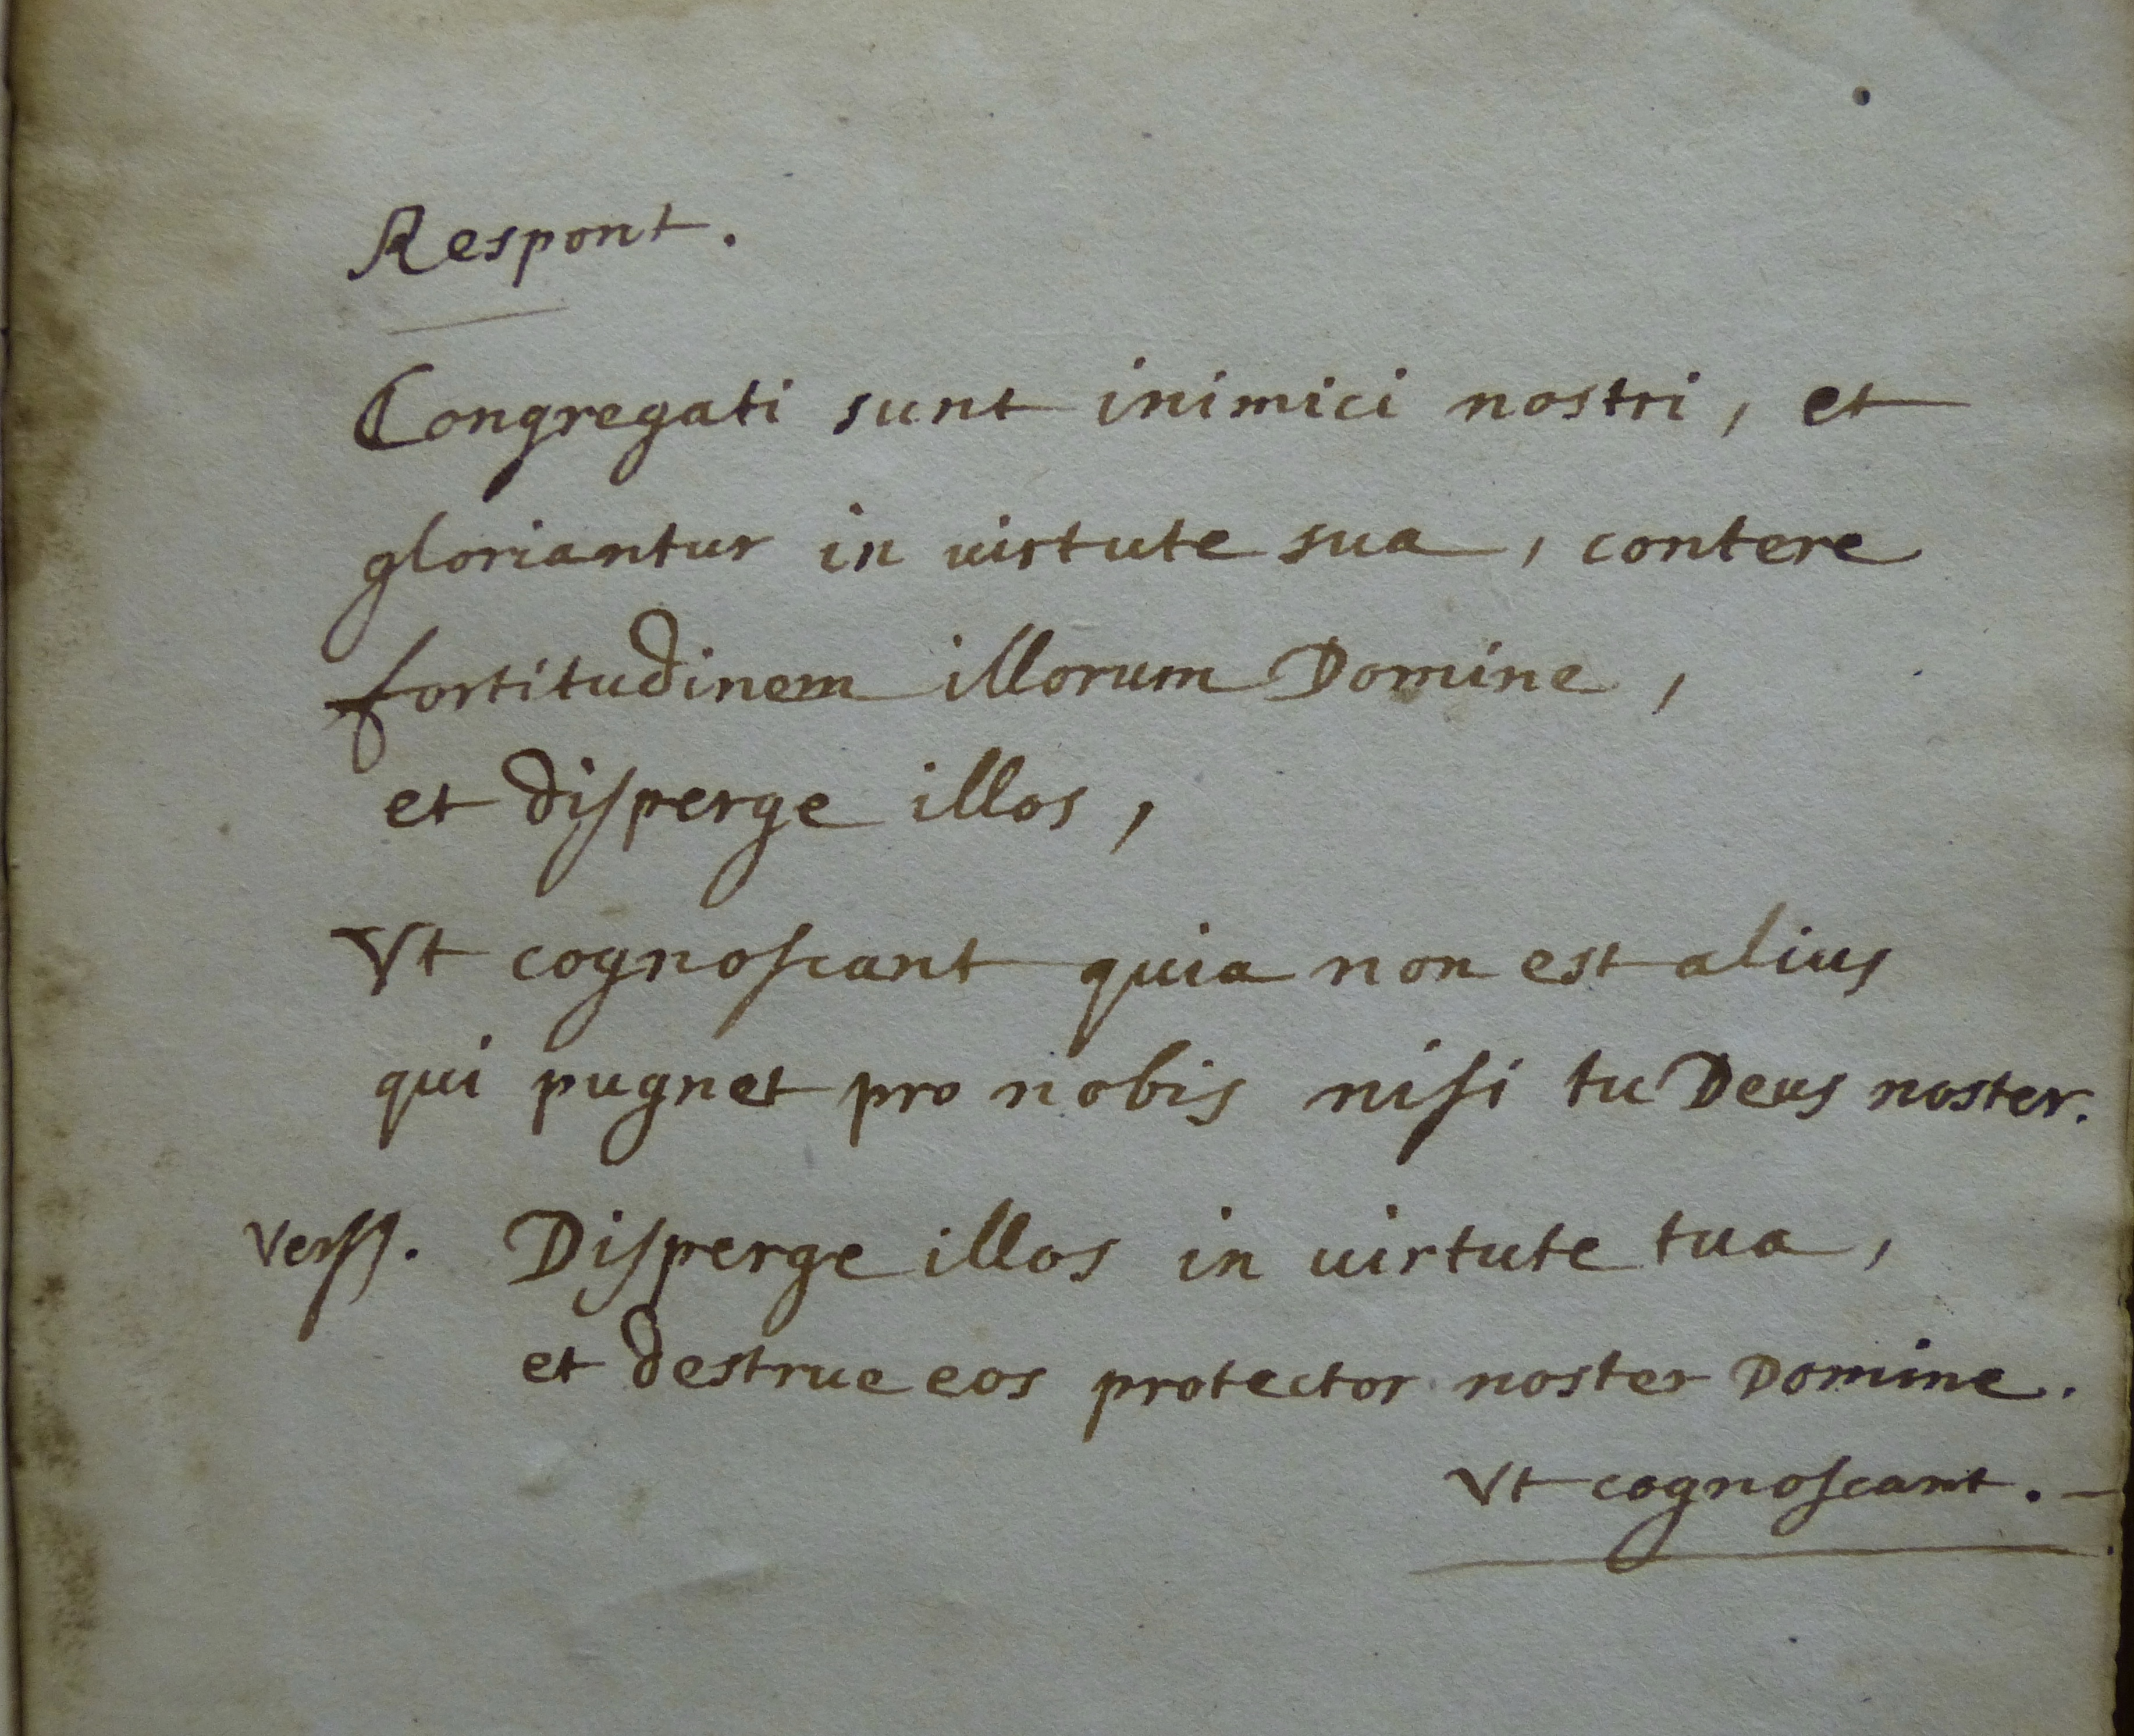 Respont.
Congregati sunt inimici nostri, et
gloriantur in uirtute sua, contere
fortitudinem illorum Domine,
et diſperge illos,
Vt cognoſcant quia non est alius
qui pugnet pro nobis niſi tu Deus noster.
Verſſ. Diſperge illos in uirtute tua,
et destrue eos protector noster Domine.
Vt cognoſcant. –